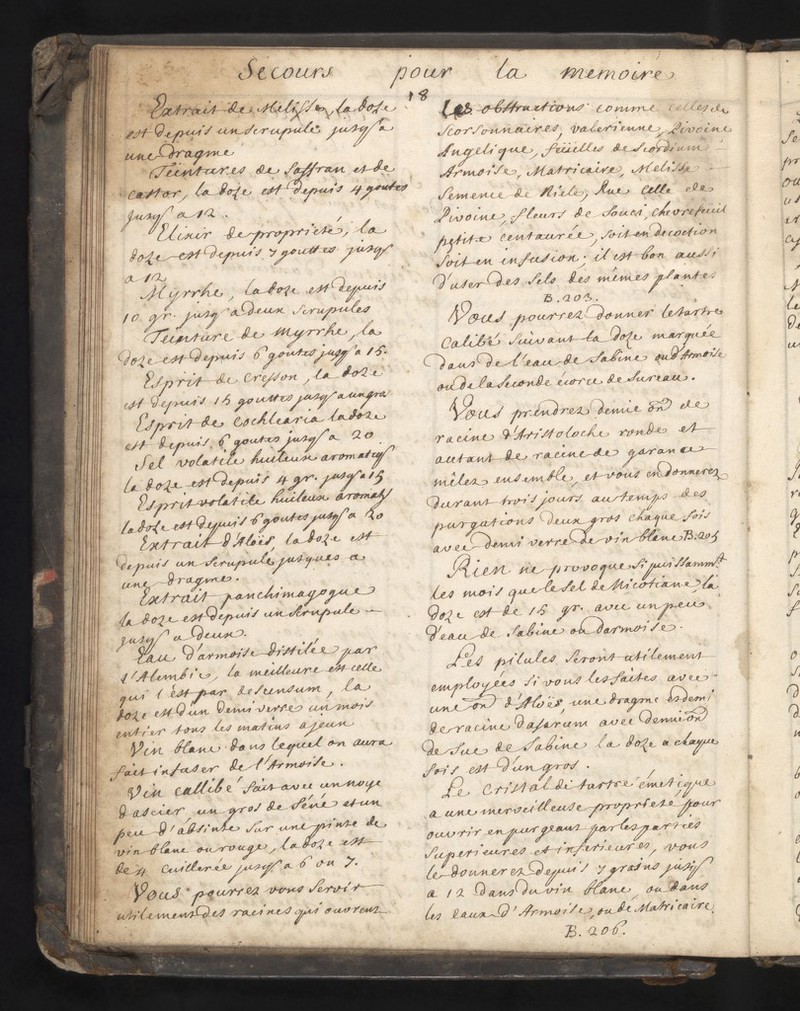 Secours pour la memoire
18
Extrait de Melisse, la doze
est depuis un scrupule jusq' a
une Dragme
Teintures de Saffran et de
castor, la doze est depuis 4 goutes
jusq' a 12.
Elixir de proprieté, la
doze est depuis 7 gouttes jusq'
a 12
Myrrhe, la doze est depuis
10 gr. jusq' a deux scrupules
Teinture de Myrrhe, la
doze est depuis 6 goutes jusq' a 15.
Esprit de Cresson, la doze
est depuis 15 gouttes jusq' a un gros
Esprit de Cochlearia la doze
est depuis 6 goutes jusq' a 20
Sel volatile huileux aromatiq'
la doze est depuis 4 gr. jusq' a 15
Esprit volatile huileux aromatiq'
la doze est depuis 6 goutes jusq' a 20
Extrait d'Aloës, la doze est
depuis un scrupule jusques a
une dragme.
Extrait panchimagogue
la doze est depuis un scrupule
jusq' a deux.
Eau d'armoise distilée par
l'Alembic, la meilleure est celle
qui l'est par desensum, la
doze est d'un demi verre un mois
entier tous les matins a jeun
Vin blanc dans lequel on aura
fait infuser de l'Armoise.
Vin callibé fait avec un noye
d'ascier, un gros de Séné et un
peu d'absinte sur une pinte de
vin blanc ou rouge, la doze est
de 4 cuillerée jusq' a 6 ou 7.
Vous pourrez vous servir
utilement des racines qui ouvrent
les obstructions comme celles de
scorsonnaires, valerienne, Pivoine
Angelique, feüilles de Scordium
Armoise, Matricaire, Melisse
semence de Niele, Rue celle de
Pivoine, fleurs de souci, chevrefeuil
petite centaurée, soit en decoction
soit en infusion; il est bon aussi
d'user des sels des mêmes plantes
B. 203.
Vous pourrez donner le tartre
Calibé suivant la doze marquée
dans de l'eau de Sabine ou d'Armoise
ou de la seconde écorce de sureau.
Vous prendrez demie on de
racine d'Aristoloche ronde et
autant de racine de garance
mêlez ensemble, et vous en donnerez
durant trois jours au temps des
purgations deux gros chaque fois
avec demi verre de vin blanc B. 205
Rien ne provoque si puissammt
les mois que le sel de Nicotiane, la
doze est de 15 gr. avec un peu
d'eau de sabine ou darmoise.
Les pilules seront utilement
employées si vous les faites avec
une on d'Aloës une dragme et demi
de racine d'asarum avec demi on
de suc de Sabine la doze a chaque
fois est d'un gros.
Le Cristal de tartre émetique
a une merveilleuse proprieté pour
ouvrir en purgeant par les parties
superieures et inferieures, vous
le donnerez depuis 7 grains jusq'
a 12 dans du vin blanc ou dans
les eaux d'Armoise, ou de Matricaire.
B. 206.